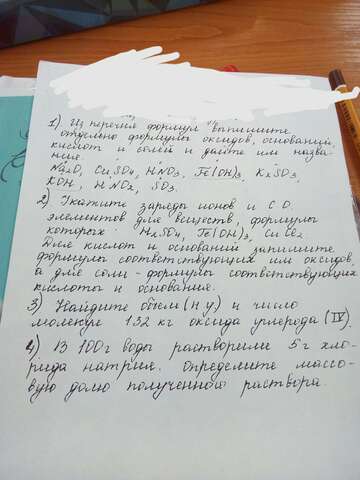 1) Из перечня формул выпишите
отдельно формулы оксидов, оснований,
кислот и солей и дайте им назва-
ние.
Na2O, CuSO4, HNO3, Fe(OH)3, K2SO3,
KOH, HNO2, SO3.
2) Укажите заряды ионов и С.О.
элементов для веществ, формулы
которых H2SO4, Fe(OH)3, CuCl2
Для кислот и оснований запишите
формулы соответствующих им оксидов,
а для соли - формулы соответствующих
кислоты и основание.
3) Найдите объем (н.у.) и число
молекул 132 кг оксида углерода (IV).
4) В 100 г воды растворили 5 г хло-
рида натрия. Определите массо-
вую долю полученного раствора.